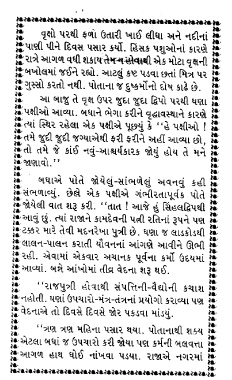 વૃક્ષો પરથી ફળો ઉતારી ખાઈ લીધા અને નદીનાં
પાણી પીને દિવસ પસાર કર્યો. હિંસક પશુઓનાં કારણે
રાત્રે આગળ વધી શકાય તેમ ન હોવાથી એક મોટા વૃક્ષની
બખોલમાં જઈને રહ્યો. આટલું કષ્ટ પડવા છતાં મિત્ર પર
ગુસ્સો કરતો નથી. પોતાના જ દુષ્કર્મોનો દોષ કાઢે છે.
આ બાજુ તે વૃક્ષ ઉપર જુદા જુદા દ્વિપો પરથી ઘણા
પક્ષીઓ આવ્યા. બધાને ભેગા કરીને વૃદ્ધાવસ્થાને કારણે
ત્યાં સ્થિર રહેલા એક પક્ષીએ પૂછ્યું કે “હે પક્ષીઓ !
તમે જુદી જુદી જગ્યાએથી ફરી ફરીને અહીં આવ્યા છો,
તો તમે જે કાંઈ નવું-આશ્ચર્યકારક જોયું હોય તે મને
જાણાવો.''
બધાએ પોતે જોયેલું-સાંભળેલું અવનવું કહી
સંભળાવ્યું. છેલ્લે એક પક્ષીએ ગંભીરતાપૂર્વક પોતે
જોયેલી વાત શરૂ કરી. “તાત ! આજે હું સિંહલદ્વિપથી
આવું છું. ત્યાં રાજાને કામદેવની પત્ની રતિનાં રૂપને પણ
ટક્કર મારે તેવી મદનરેખા પુત્રી છે. ઘણા જ લાડકોડથી
લાલન-પાલન કરાતી યૌવનનાં આંગણે આવીને ઊભી
રહી. એવામાં એકવાર અચાનક પૂર્વના કર્મો ઉદયમાં
આવ્યાં. બન્ને આંખોમાં તીવ્ર વેદના શરૂ થઈ.
“રાજપુત્રી હોવાથી સંપત્તિની-વૈદ્યોની કચાશ
નહોતી. ઘણાં ઉપચારો-મંત્ર-તંત્રનાં પ્રયોગો કરાવ્યા પણ
વેદનાએ તો દિવસે દિવસે જોર પકડવા માંડયું.
“ત્રણ ત્રણ મહિના પસાર થયા. પોતાનાથી શક્ય
એટલા બધાં જ ઉપચારો કરી જોયા પણ કર્મની બલવત્તા
આગળ હાથ ધોઈ નાંખવા પડયા. રાજાએ નગરમાં